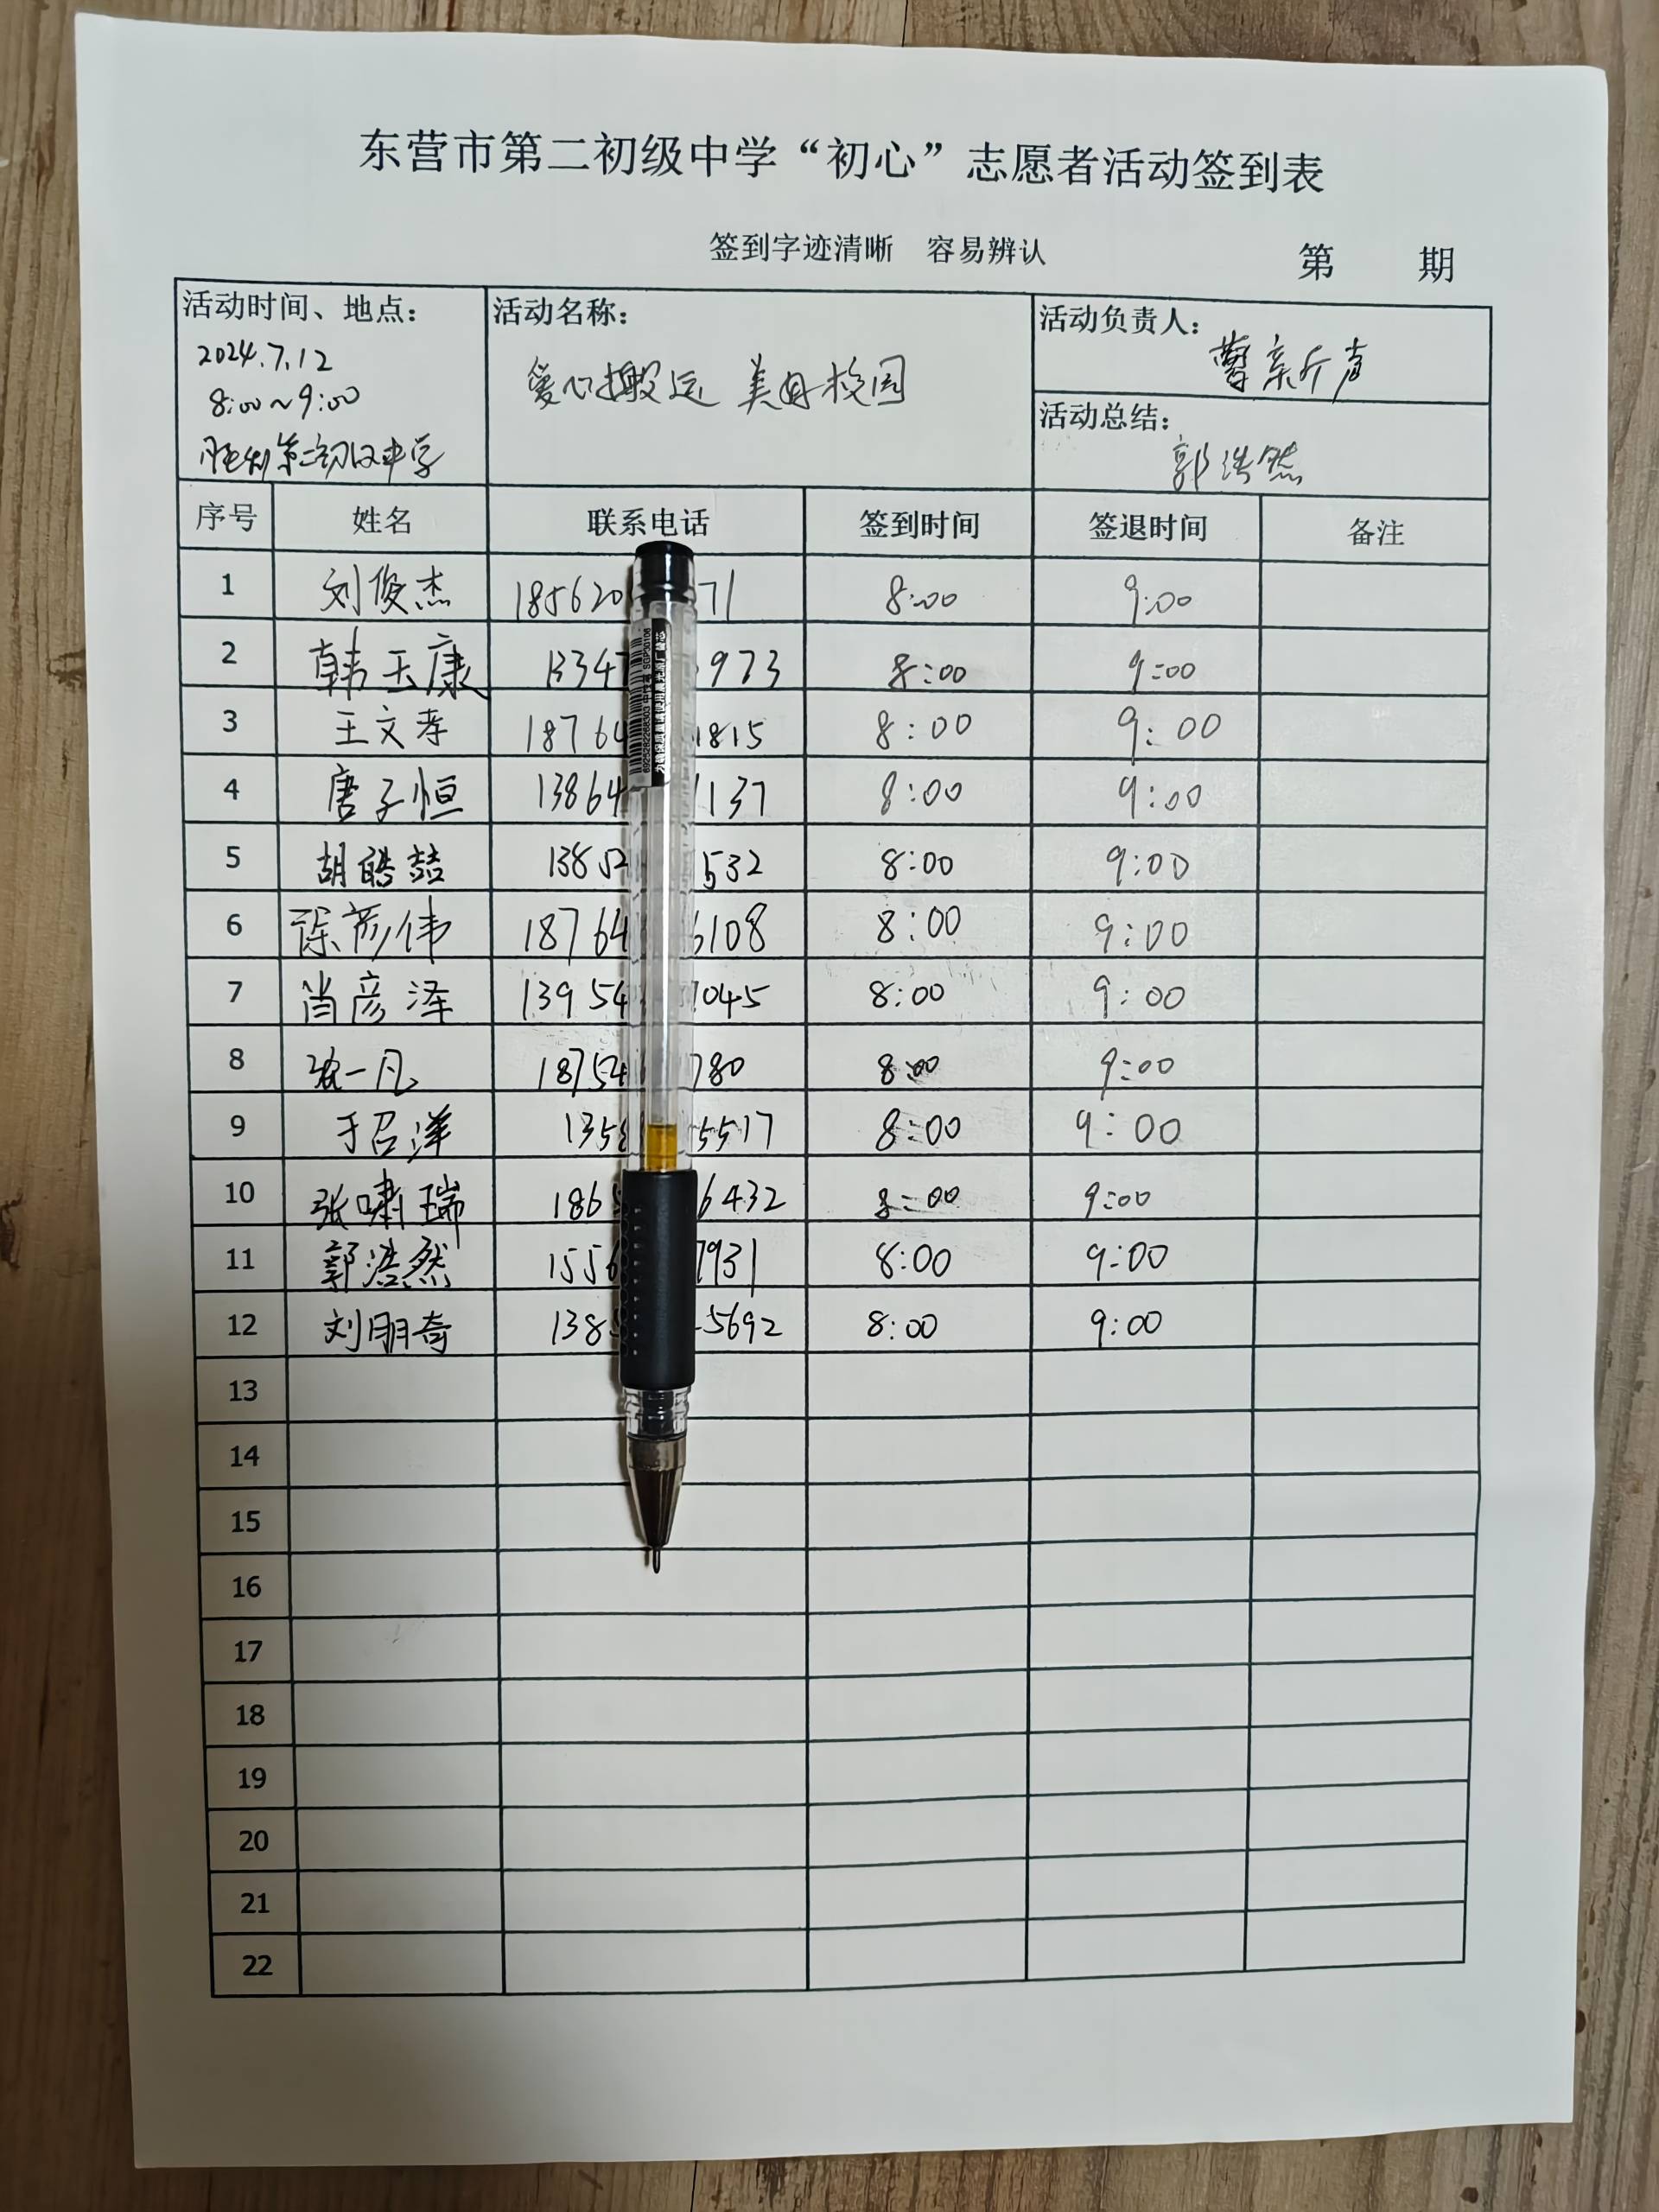 东营市第二初级中学“初心”志愿者活动签到表
签到字迹清晰 容易辨认 第 期
活动时间、地点： 活动名称： 活动负责人：
2024.7.12
8:00~9:00
爱心搬运 美母校园
胜利第二初级中学
活动总结：
郭浩然
序号 姓名 联系电话 签到时间 签退时间 备注
1 刘俊杰 185620 71 8:00 9:00
2 韩玉康 1334 973 8:00 9:00
3 王文孝 18764 1815 8:00 9:00
4 唐子恒 13864 137 8:00 9:00
5 胡皓喆 13852 532 8:00 9:00
6 徐彦伟 18764 6108 8:00 9:00
7 肖彦泽 13954 7045 8:00 9:00
8 一凡 18754 780 8:00 9:00
9 于召洋 135 5517 8:00 9:00
10 张啸瑞 186 6432 8:00 9:00
11 郭浩然 1556 7931 8:00 9:00
12 刘朋奇 138 5692 8:00 9:00
13
14
15
16
17
18
19
20
21
22